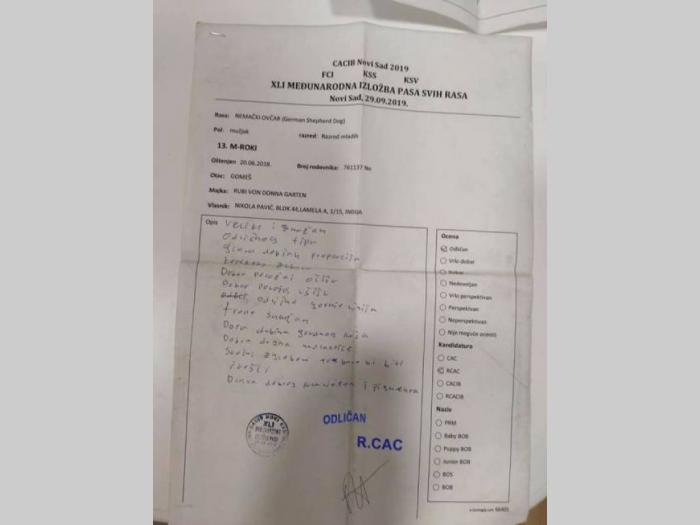 CACIB Novi Sad 2019
FCI KSS KSV
XLI MEĐUNARODNA IZLOŽBA PASA SVIH RASA
Novi Sad, 29.09.2019.
Rasa: NEMAČKI OVČAR (German Shepherd Dog)
Pol: mužjak razred: Razred mladih
13. M-ROKI
Oštenjen 20.06.2018. Broj rodovnika: 761137 No
Otac: GOMEŠ
Majka: RUBI VON DONNA GARTEN
Vlasnik: NIKOLA PAVIĆ, BLOK 44,LAMELA A, 1/15, INĐIJA
Opis
Veliki i snažan
Odličnog tipa
Glava dobrih proporcija
Dobar položaj očiju
Dobar položaj ušiju
odlična gornja linija
front
Dobra dubina grudnog koša
Dobra dužina
Skočni zglobovi bi biti
Dobrog i pigmenta
ODLIČAN
R.CAC
CACIB NOVI SAD
XLI
Ocena
Odličan
Vrlo dobar
Dobar
Nedovoljan
Vrlo perspektivan
Perspektivan
Neperspektivan
Nije moguće oceniti
Kandidatura
CAC
RCAC
CACIB
RCACIB
Naziv
PRM
Baby BOB
Puppy BOB
Junior BOB
BOS
BOB